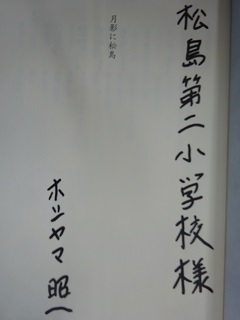 松島第二小学校様
月影に松島
ホシヤマ昭一